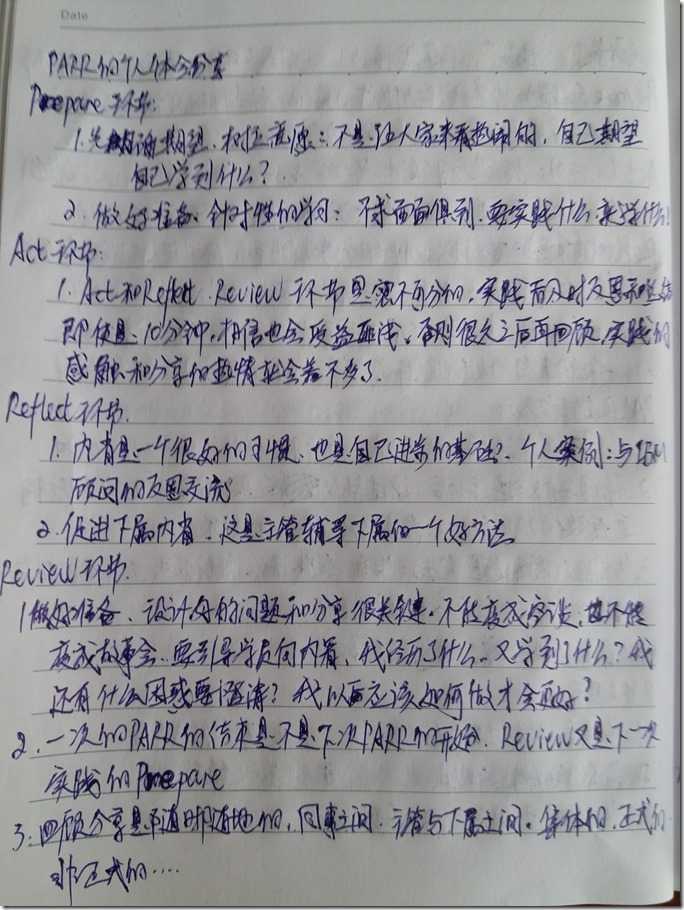 Date
PARR的个人体会分享
Prepare环节:
1.先明确期望、树立意愿:不是陪大家来看热闹的,自己期望
自己学到什么?
2.做好准备、针对性的学习:不求面面俱到.要实践什么来学什么!
Act环节:
1. Act和Reflect.Review环节是密不可分的,实践后及时反思和总结
即使是10分钟,相信也会受益匪浅。否则很久之后再回顾,实践的
感触和分享的热情就会差不多了.
Reflect环节.
1.内省是一个很好的习惯、也是自己进步的基础?.个人案例:与IBM
顾问的反思交流
2.促进下属内省.这是主管辅导下属的一个好方法
Review环节.
1做好准备、设计好的问题和分享很关键.不能变成空谈,也不能
变成故事会.要引导学员向内看,我经历了什么.又学到了什么?我
还有什么困惑要澄清?我以后应该如何做才会更好?
2.一次的PARR的结束是不是下次PARR的开始.Review又是下一次
实践的Prepare
3.回顾分享是随时随地的,同事之间.主管与下属之间.集体的.正式的
非正式的....